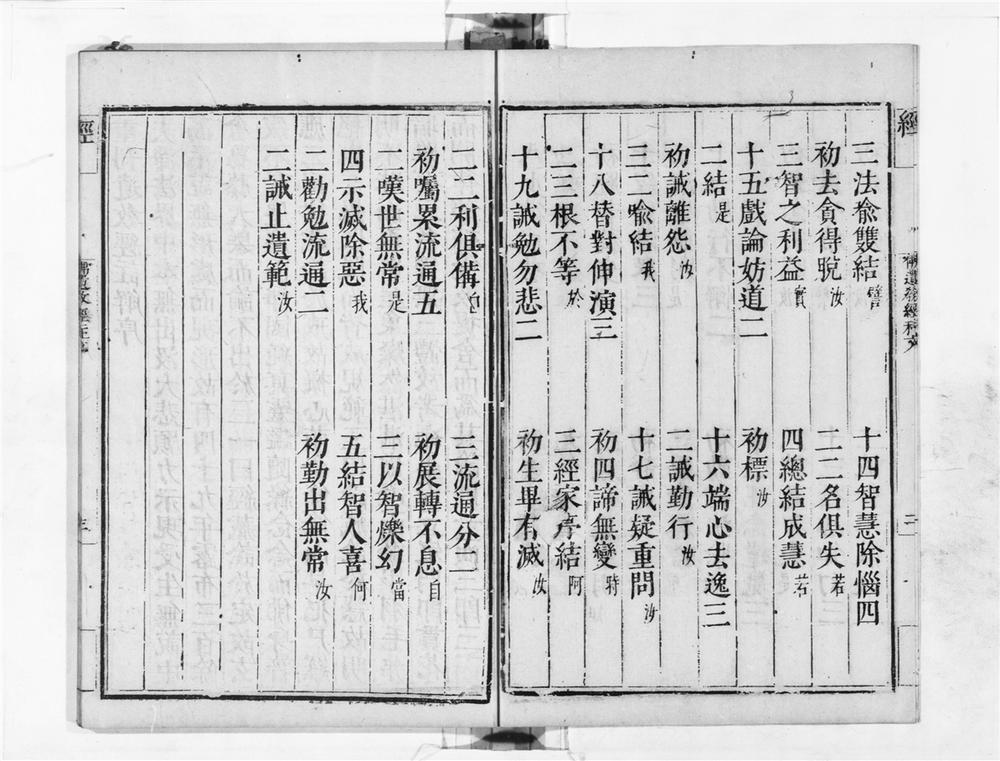 經
遺教經科文
二
三法喻雙結譬
十四智慧除惱四
初去貪得脫汝
二名俱失若
三智之利益實
四總結成慧若
十五戲論妨道二
初標汝
二結是
十六端心去逸三
初誡離怨汝
二誡勤行汝
三二喻結我
十七誡疑重問汝
十八替對伸演三
初四諦無變時
二三根不等於
三經家序結阿
十九誡勉勿悲二
初生畢有滅汝
二二利俱備
三流通分二
初囑累流通五
初展轉不息自
二嘆世無常是
三以智爍幻當
四示滅除惡我
五結智人喜何
二勸勉流通二
初勤出無常汝
二誡止遺範汝
經
三